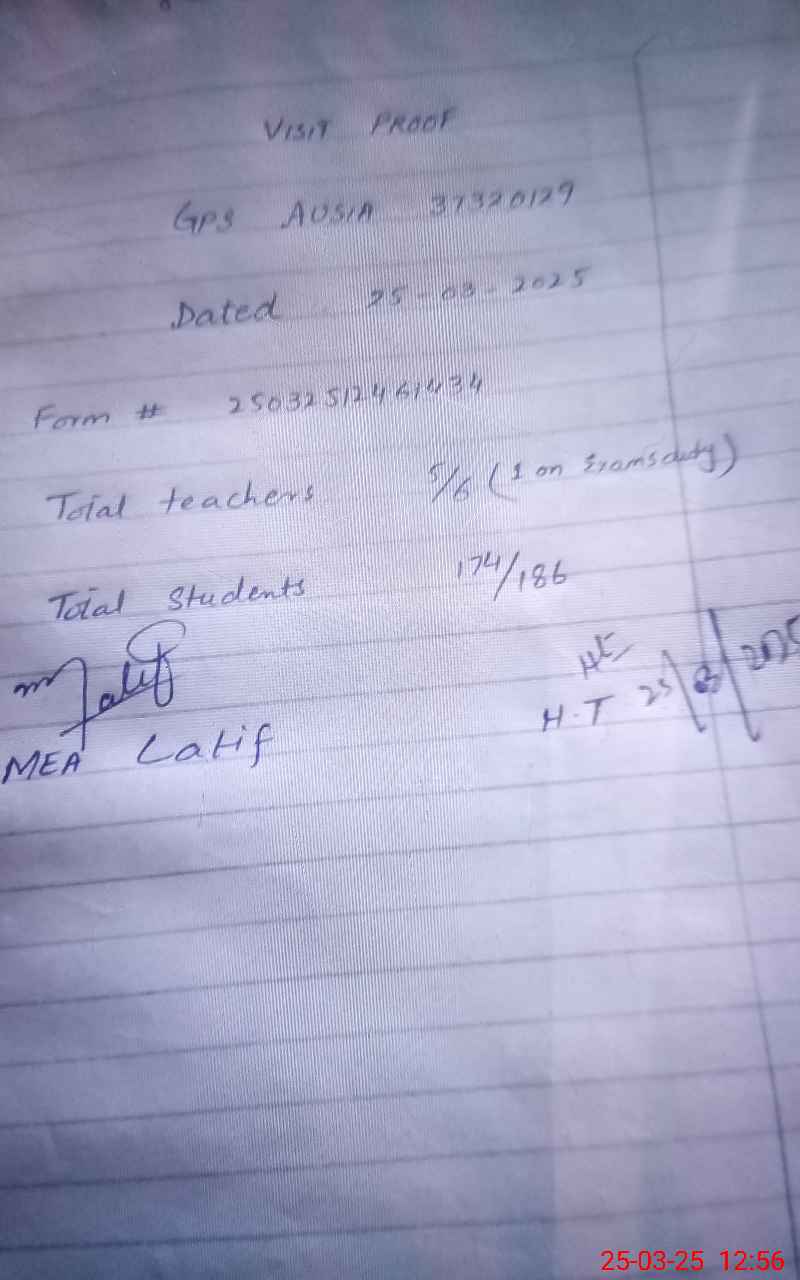 VISIT PROOF
GPS AUSIA 37320129
Dated 25-03-2025
Form # 25032512461434
Total teachers 5/6 (1 on Exams duty)
Total Students 174/186
MEA Latif
H.T 25/03/2025
25-03-25 12:56